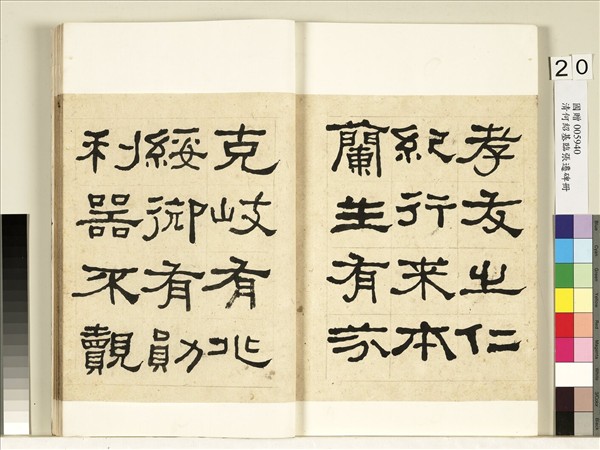 孝友之仁
紀行来本
蘭生有芬
克岐有兆
綏御有勛
利器不覿
20
國贈 005940
清何紹基臨張遷碑冊